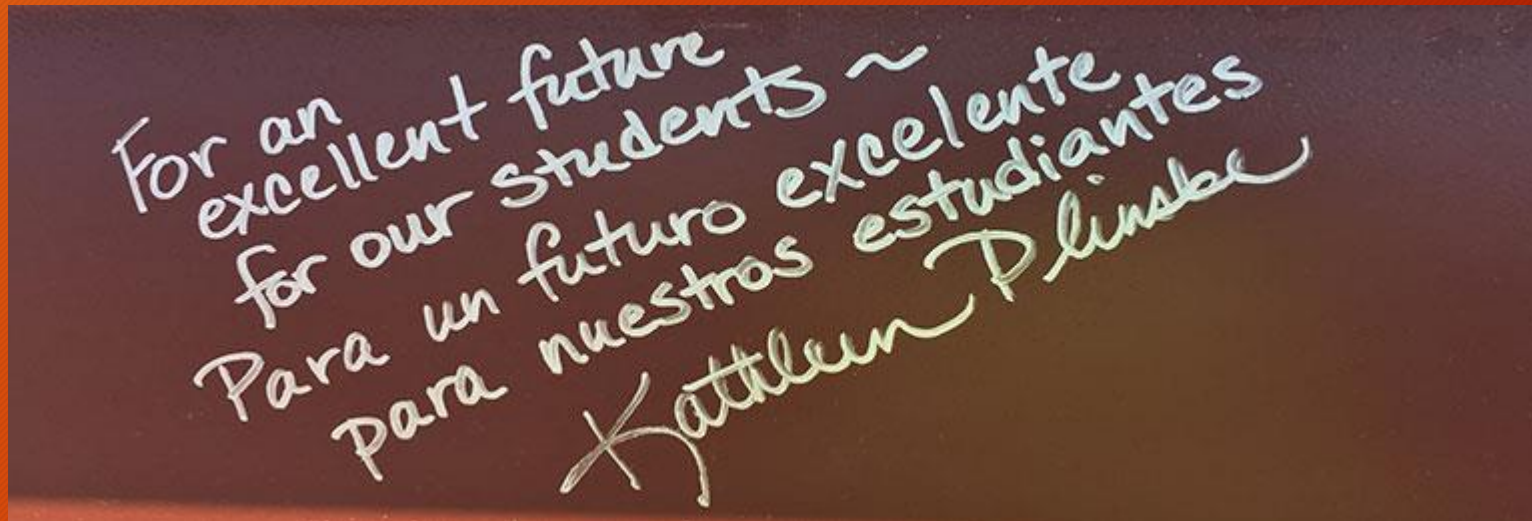 For an
excellent future
for our students ~
Para un futuro excelente
para nuestros estudiantes
Kathleen Plinske